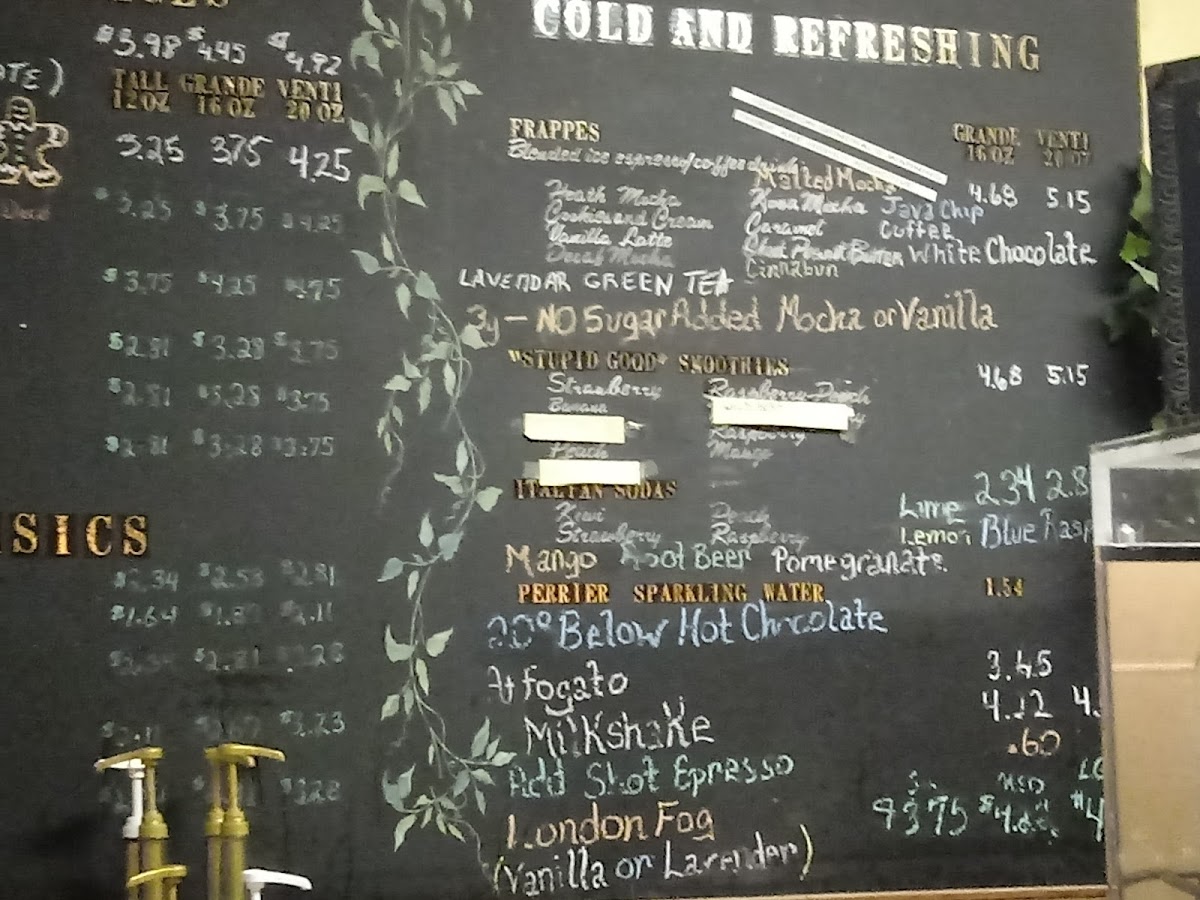 $3.98 $4.45 $4.92
TALL GRANDE VENTI
12 OZ 16 OZ 20 OZ
3.25 3.75 4.25
$3.25 $3.75 $4.25
$3.75 $4.25 $4.75
$2.81 $3.28 $3.75
$2.81 $3.28 $3.75
$2.81 $3.28 $3.75
SICS
$2.34 $2.53 $2.81
$1.64 2.11
$3.23
3.28
COLD AND REFRESHING
FRAPPES
GRANDE VENTI
16 OZ 20 OZ
Blended ice espresso/coffee drink
Malted Mocha
4.68 5.15
Heath Mocha
Kona Mocha
Java Chip
Cookies and Cream
Caramel
Coffee
Vanilla Latte
Choc Peanut Butter
White Chocolate
Decaf Mocha
Cinnabun
LAVENDAR GREEN TEA
3g - NO Sugar Added Mocha or Vanilla
"STUPID GOOD" SMOOTHIES
4.68 5.15
Strawberry
Raspberry-Peach
Banana
Raspberry
Peach
Mango
ITALIAN SODAS
2.34 2.8
Kiwi
Peach
Lime
Strawberry
Raspberry
Lemon
Blue Rasp
Mango Root Beer Pomegranate
PERRIER SPARKLING WATER 1.54
20° Below Hot Chocolate
Affogato 3.45
Milkshake 4.12 4.
Add Shot Epresso .60
London Fog $3.75
(Vanilla or Lavender)